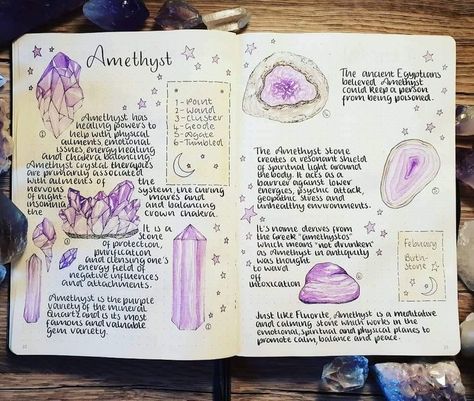 Amethyst
1 - Point
2 - Wand
3 - Cluster
4 - Geode
5 - Agate
6 - Tumbled
Amethyst has
healing powers to
help with physical
ailments, emotional
issues, energy healing
and chakra balancing.
Amethyst crystal therapies
are primarily associated
with ailments of the
nervous system, the curing
of night mares and
insomnia and balancing
the crown chakra.
It is a
Stone
of protection,
purification
and cleansing one's
energy field of
negative influences
and attachments.
Amethyst is the purple
variety of the mineral
Quartz and is its most
famous and valuable
gem variety.
The ancient Egyptians
believed Amethyst
could keep a person
from being poisoned.
The Amethyst Stone
creates a resonant shield
of spiritual light around
the body. It acts as a
barrier against lower
energies, psychic attack,
geopathic stress and
unhealthy environments.
It's name derives from
the Greek "amethystos"
which means "not drunken"
as Amethyst in antiquity
was thought
to ward
of
intoxication
February
Birth-
Stone
Just like Fluorite, Amethyst is a meditative
and calming stone which works in the
emotional, spiritual and physical planes to
promote calm, balance and peace.